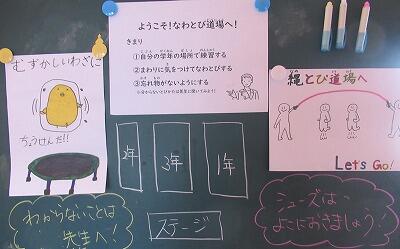 むずかしいわざに
ちょうせんだ!!
ようこそ！なわとび道場へ！
きまり
①自分の学年の場所で練習する
②まわりに気をつけてなわとびする
③忘れ物がないようにする
縄とび道場へ
Let's Go!
2年
3年
1年
ステージ
わからないことは
先生へ!
シューズは
よこにおきましょう!